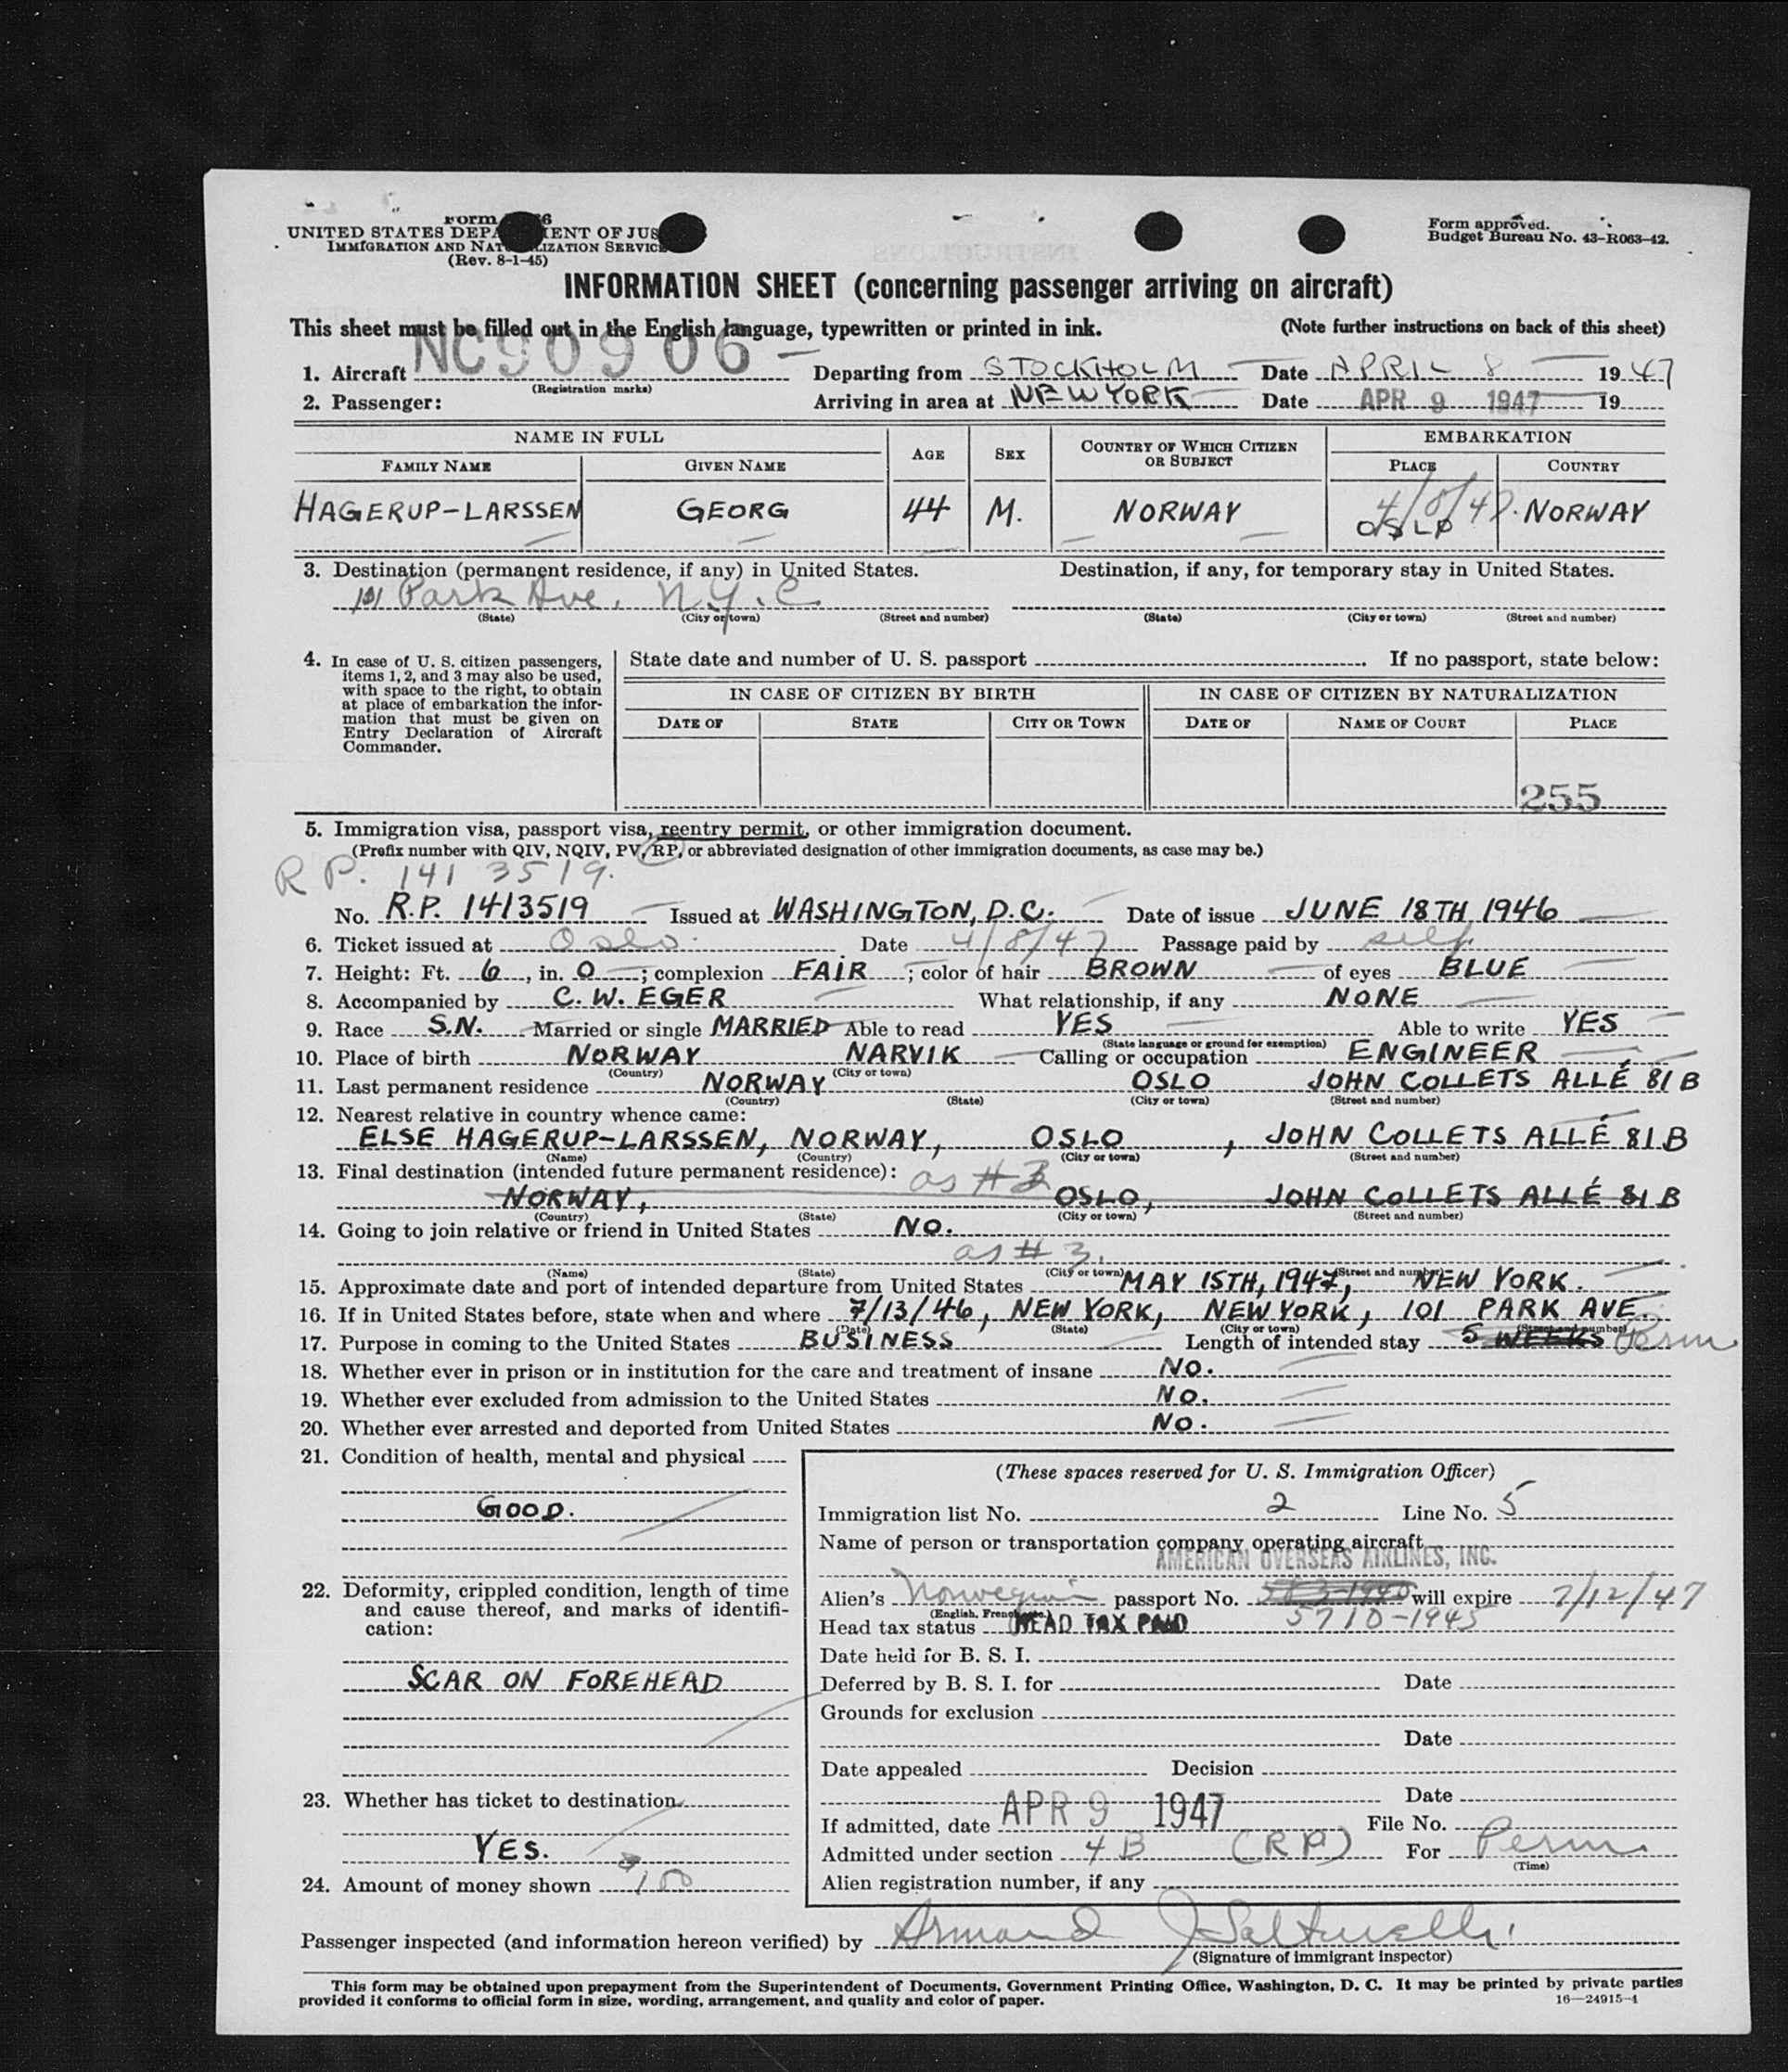 Form 6
UNITED STATES DEPA ENT OF JUS
IMMIGRATION AND NAT LIZATION SERVIC
(Rev. 8-1-45)
Form approved.
Budget Bureau No. 43-R063-42.
INFORMATION SHEET (concerning passenger arriving on aircraft)
This sheet must be filled out in the English language, typewritten or printed in ink. (Note further instructions on back of this sheet)
1. Aircraft NC90906 Departing from STOCKHOLM Date APRIL 8 1947
(Registration marks)
2. Passenger: Arriving in area at NEW YORK Date APR 9 1947 19
NAME IN FULL AGE SEX COUNTRY OF WHICH CITIZEN OR SUBJECT EMBARKATION
FAMILY NAME GIVEN NAME PLACE COUNTRY
HAGERUP-LARSSEN GEORG 44 M. NORWAY 4/8/47. OSLO NORWAY
3. Destination (permanent residence, if any) in United States. Destination, if any, for temporary stay in United States.
101 Park Ave. N.Y.C.
(State) (City or town) (Street and number) (State) (City or town) (Street and number)
4. In case of U. S. citizen passengers,
items 1, 2, and 3 may also be used,
with space to the right, to obtain
at place of embarkation the infor-
mation that must be given on
Entry Declaration of Aircraft
Commander.
State date and number of U. S. passport If no passport, state below:
IN CASE OF CITIZEN BY BIRTH IN CASE OF CITIZEN BY NATURALIZATION
DATE OF STATE CITY OR TOWN DATE OF NAME OF COURT PLACE
255
5. Immigration visa, passport visa, reentry permit, or other immigration document.
(Prefix number with QIV, NQIV, PV, RP, or abbreviated designation of other immigration documents, as case may be.)
R P. 141 3519.
No. R.P. 1413519 Issued at WASHINGTON, D.C. Date of issue JUNE 18TH 1946
6. Ticket issued at Oslo Date 4/8/47 Passage paid by self
7. Height: Ft. 6, in. 0; complexion FAIR; color of hair BROWN of eyes BLUE
8. Accompanied by C. W. EGER What relationship, if any NONE
9. Race S.N. Married or single MARRIED Able to read YES Able to write YES
(State language or ground for exemption)
10. Place of birth NORWAY NARVIK Calling or occupation ENGINEER
(Country) (City or town)
11. Last permanent residence NORWAY OSLO JOHN COLLETS ALLÉ 81 B
(Country) (State) (City or town) (Street and number)
12. Nearest relative in country whence came:
ELSE HAGERUP-LARSSEN, NORWAY, OSLO, JOHN COLLETS ALLÉ 81 B
(Name) (Country) (City or town) (Street and number)
13. Final destination (intended future permanent residence): as # 3
NORWAY, OSLO, JOHN COLLETS ALLÉ 81 B
(Country) (State) (City or town) (Street and number)
14. Going to join relative or friend in United States NO.
as # 3.
(Name) (State) (City or town) (Street and number)
15. Approximate date and port of intended departure from United States MAY 15TH, 1947, NEW YORK.
16. If in United States before, state when and where 7/13/46, NEW YORK, NEW YORK, 101 PARK AVE.
(Date) (State) (City or town) (Street and number)
17. Purpose in coming to the United States BUSINESS Length of intended stay 5 WEEKS Perm
18. Whether ever in prison or in institution for the care and treatment of insane NO.
19. Whether ever excluded from admission to the United States NO.
20. Whether ever arrested and deported from United States NO.
21. Condition of health, mental and physical
GOOD.
22. Deformity, crippled condition, length of time
and cause thereof, and marks of identifi-
cation:
SCAR ON FOREHEAD
23. Whether has ticket to destination
YES.
24. Amount of money shown 100
(These spaces reserved for U. S. Immigration Officer)
Immigration list No. 2 Line No. 5
Name of person or transportation company operating aircraft
AMERICAN OVERSEAS AIRLINES, INC.
Alien's Norwegian passport No. will expire 7/12/47
(English, French, etc.)
Head tax status HEAD TAX PAID 5710-1945
Date held for B. S. I.
Deferred by B. S. I. for Date
Grounds for exclusion
Date
Date appealed Decision
Date
If admitted, date APR 9 1947 File No.
Admitted under section 4 B (RP) For Perm.
(Time)
Alien registration number, if any
Passenger inspected (and information hereon verified) by Armand J
(Signature of immigrant inspector)
This form may be obtained upon prepayment from the Superintendent of Documents, Government Printing Office, Washington, D. C. It may be printed by private parties
provided it conforms to official form in size, wording, arrangement, and quality and color of paper.
16—24915-1